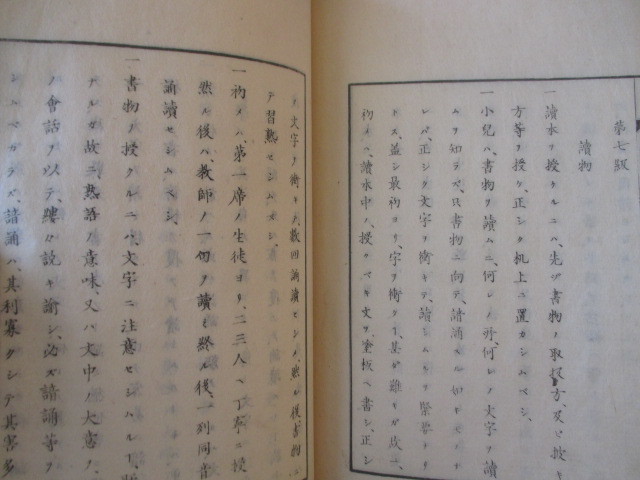 第七級
讀物
一讀本ヲ授クルニハ、先ヅ書物ノ取扱方及ビ披キ
方等ヲ授ケ、正シク机上ニ置カシムベシ、
一小兒ハ、書物ヲ讀ムニ、何レノ行、何レノ文字ヲ讀
ムヲ知ラズ、只書物ニ向テ、諳誦スル如キモノナ
レバ、正シク文字ヲ衝キテ、讀シムルヲ緊要ナリ
トス、蓋シ最初ヨリ、字ヲ衝ク
初メハ、讀本中ノ、授クベキ文ヲ塗板ヘ書シ、正シ
ク文字ヲ衝キテ、數回誦讀セシメ、然ル後書物ニ
テ習熟セシムベシ、
一初メハ、第一席ノ生徒ヨリ、二三人ヘ丁寧ニ授ケ
然ル後ハ、教師ノ一句ヲ讀ミ終ル後、一列同音ニ
誦讀セシムベシ、
一書物ヲ授クルニハ、文字ニ注意セシムルヲ
アルガ故ニ、熟語ノ意味、又ハ文中ノ大意ヲ、
ノ會話ヲ以テ、縷々説キ諭シ、必ズ諳誦等ヲ
シムベカラズ、諳誦ハ、其利寡クシテ其害多